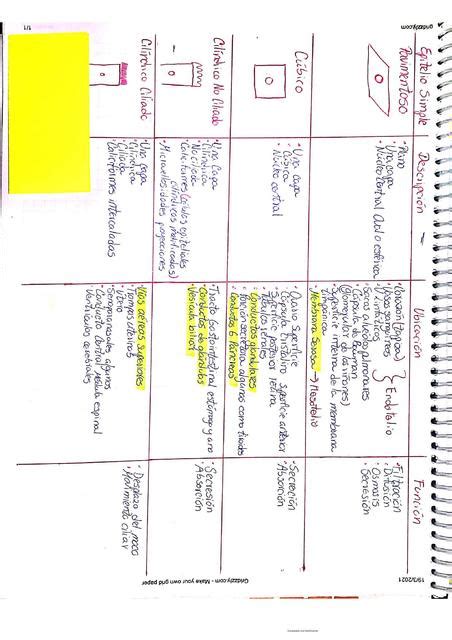 gridzzly.com
1/1
Epitelio Simple
Descripción
Ubicación
Función
Pavimentoso
• Plano
• Una capa
• Núcleo central
• Corazón (tapiza)
• Vasos sanguíneos
y linfáticos
} Endotelio
• Sacos alveolos pulmonares
• Cápsula de Bowman
(Glomérulos de los riñones)
• Superficie interna de la membrana
timpánica
• Membrana Serosa → Mesotelio
• Filtración
• Difusión
• Osmosis
• Secresión
Cúbico
• Una capa
• Cúbica
• Núcleo central
• Ovario Superficie
• Cápsula cristalino superficie anterior
• Superficie posterior retina
• Conductos glandulares
• Porción secretora algunas como tiroides
• Conductos Páncreas
• Secreción
• Absorción
Cilíndrico No Ciliado
• Una capa
• Cilíndrica
• No Ciliada
• Caliciformes (células epiteliales
cilíndricas modificadas)
• Microvellosidades proyecciones
• Tracto Gastrointestinal estómago y ano
• Conductos de glándulas
• Vesícula biliar
• Secresión
• Absorción
Cilíndrico Ciliado
• Una capa
• Cilíndrica
• Ciliada
• Caliciformes intercaladas
• Vías aéreas superiores
• Útero
• Trompas uterinas
• Senos paranasales algunos
• Conducto central médula espinal
• Ventrículos cerebrales
• Desplazo del moco
• Movimiento ciliar
19/3/2021
Gridzzly.com - Make your own grid paper